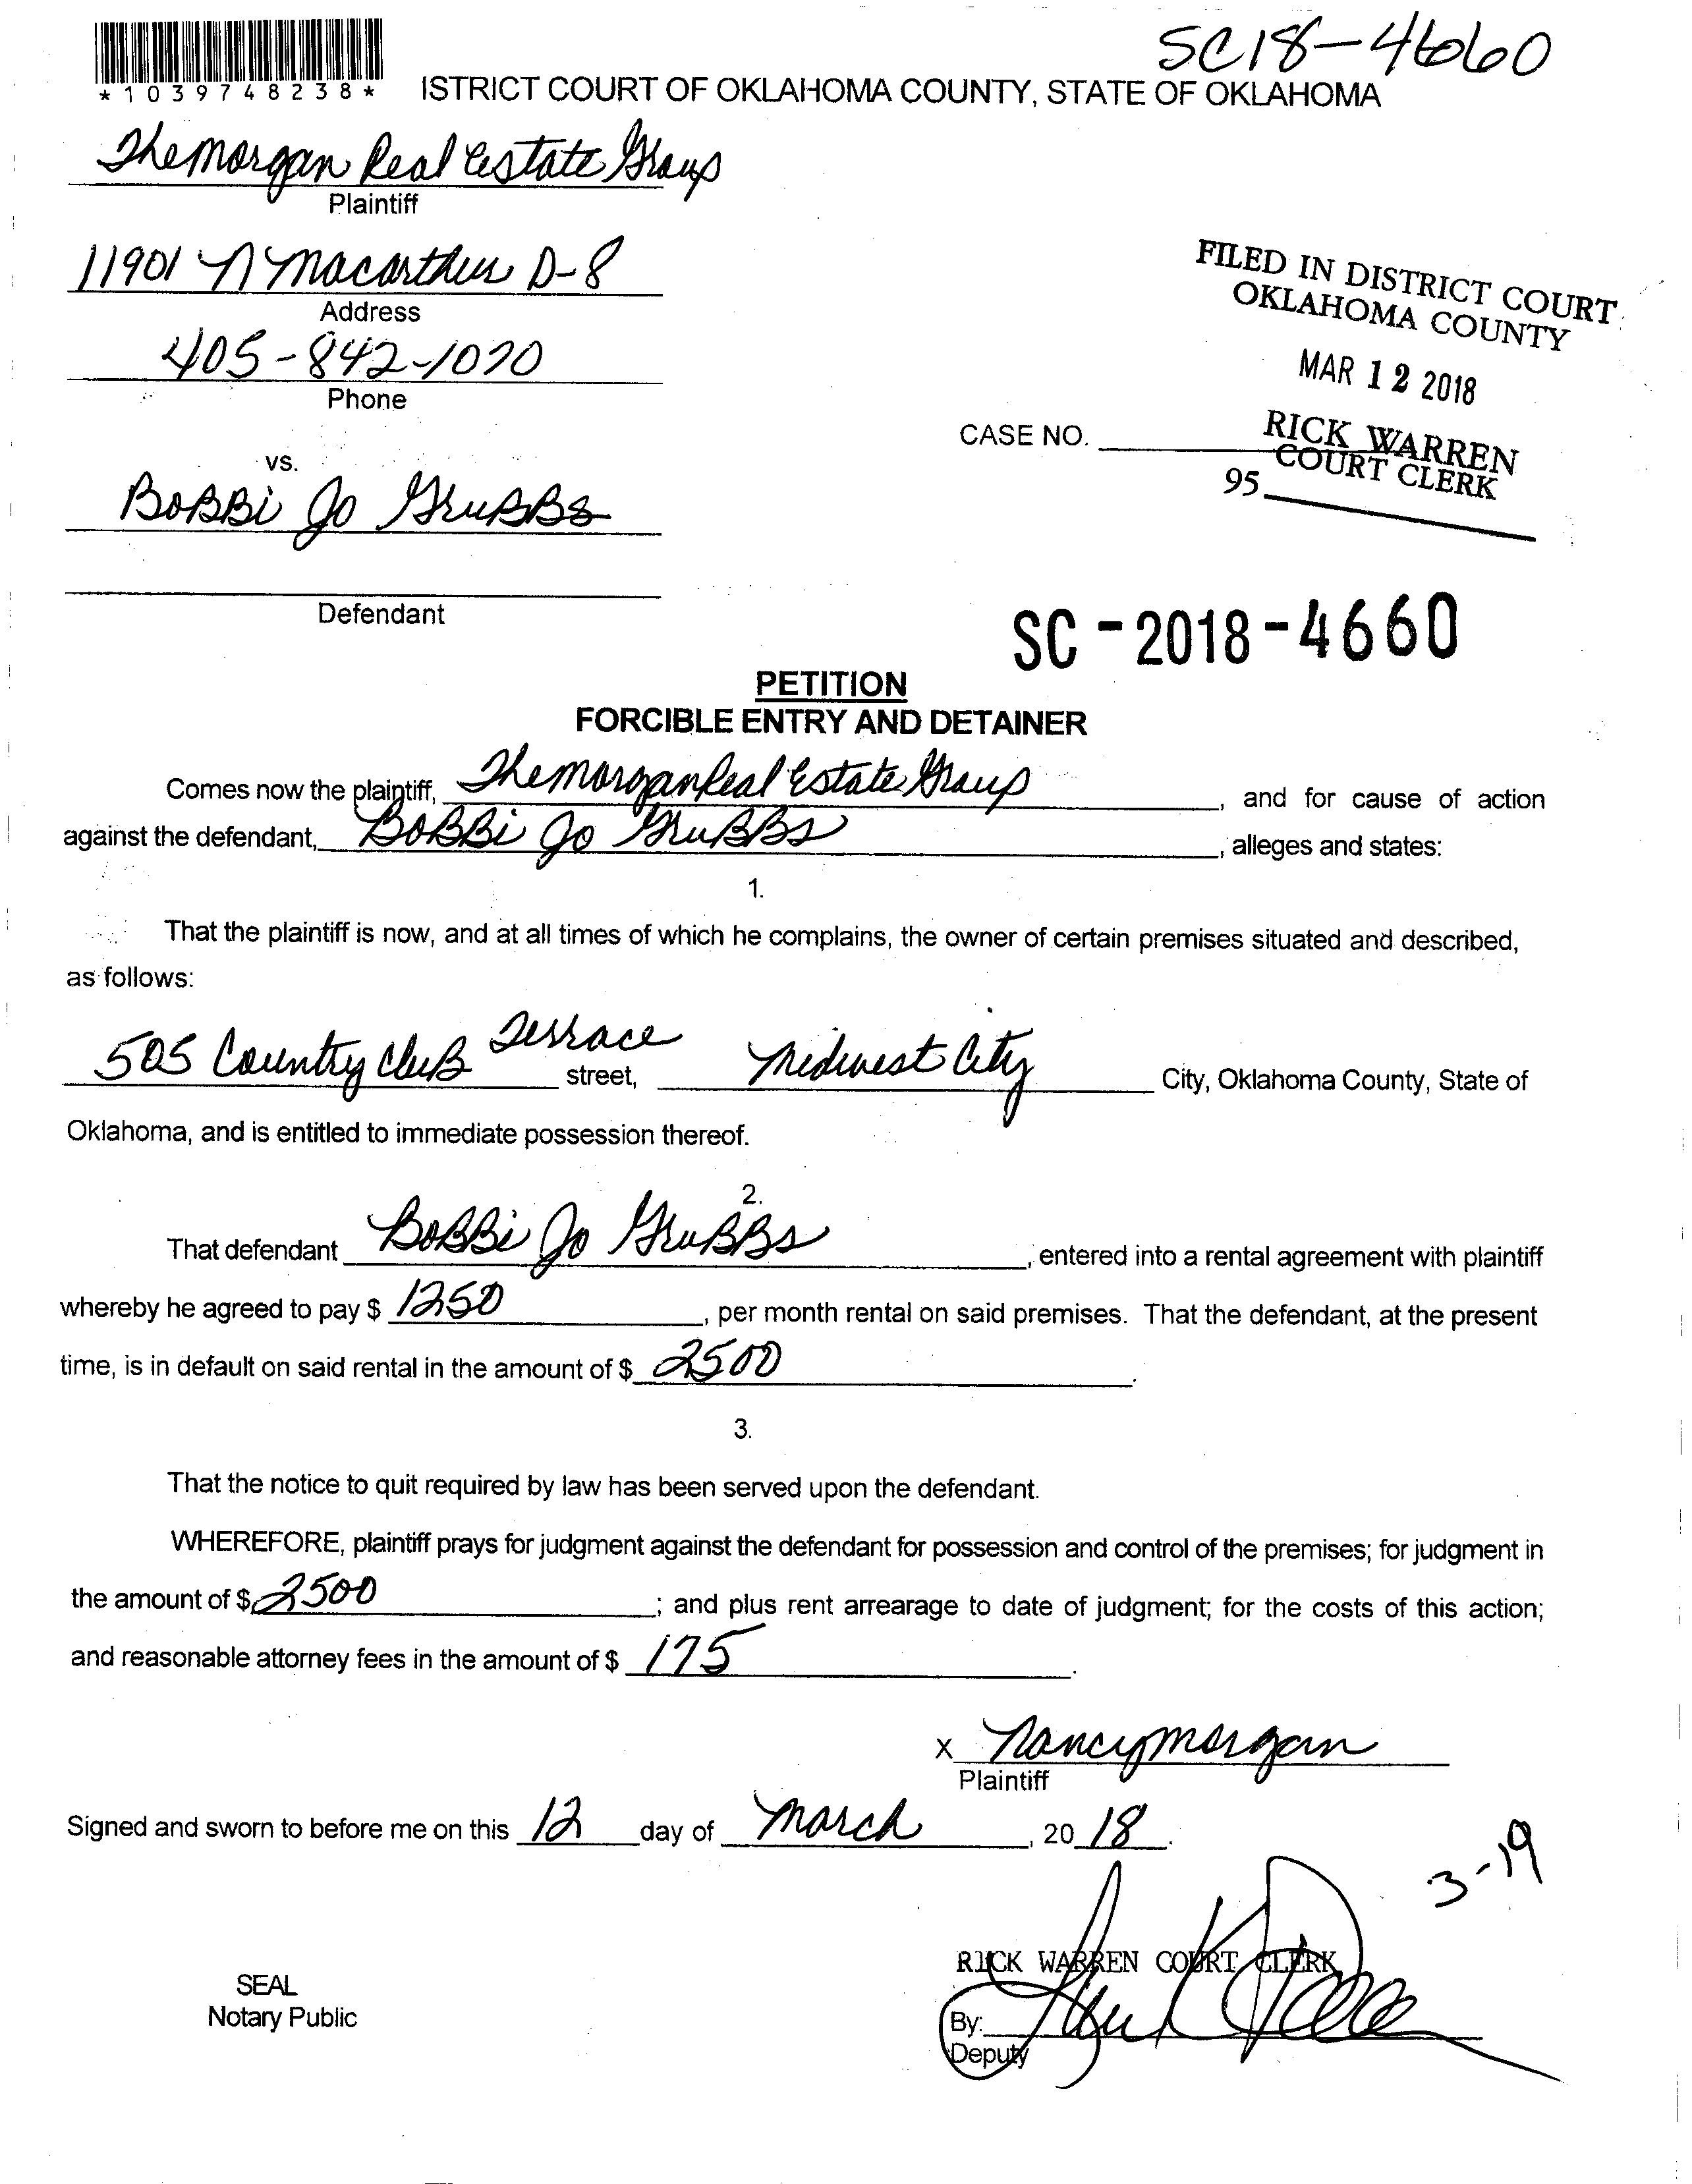 SC18-4660
*1039748238*
ISTRICT COURT OF OKLAHOMA COUNTY, STATE OF OKLAHOMA
The Morgan Real Estate Group
Plaintiff
11901 N Macarthur D-8
Address
405-842-1070
Phone
FILED IN DISTRICT COURT
OKLAHOMA COUNTY
MAR 12 2018
RICK WARREN
COURT CLERK
95
CASE NO.
vs.
BoBBi Jo GruBBs
Defendant
SC-2018-4660
PETITION
FORCIBLE ENTRY AND DETAINER
Comes now the plaintiff, The Morgan Real Estate Group, and for cause of action
against the defendant, BoBBi Jo GruBBs, alleges and states:
1.
That the plaintiff is now, and at all times of which he complains, the owner of certain premises situated and described,
as follows:
505 Country CluB Terrace street, Midwest City City, Oklahoma County, State of
Oklahoma, and is entitled to immediate possession thereof.
2.
That defendant BoBBi Jo GruBBs, entered into a rental agreement with plaintiff
whereby he agreed to pay $ 1250, per month rental on said premises. That the defendant, at the present
time, is in default on said rental in the amount of $ 2500.
3.
That the notice to quit required by law has been served upon the defendant.
WHEREFORE, plaintiff prays for judgment against the defendant for possession and control of the premises; for judgment in
the amount of $ 2500; and plus rent arrearage to date of judgment; for the costs of this action;
and reasonable attorney fees in the amount of $ 175.
X Nancy Morgan
Plaintiff
Signed and sworn to before me on this 12 day of March, 20 18.
3-19
RICK WARREN COURT CLERK
SEAL
Notary Public
By:
Deputy